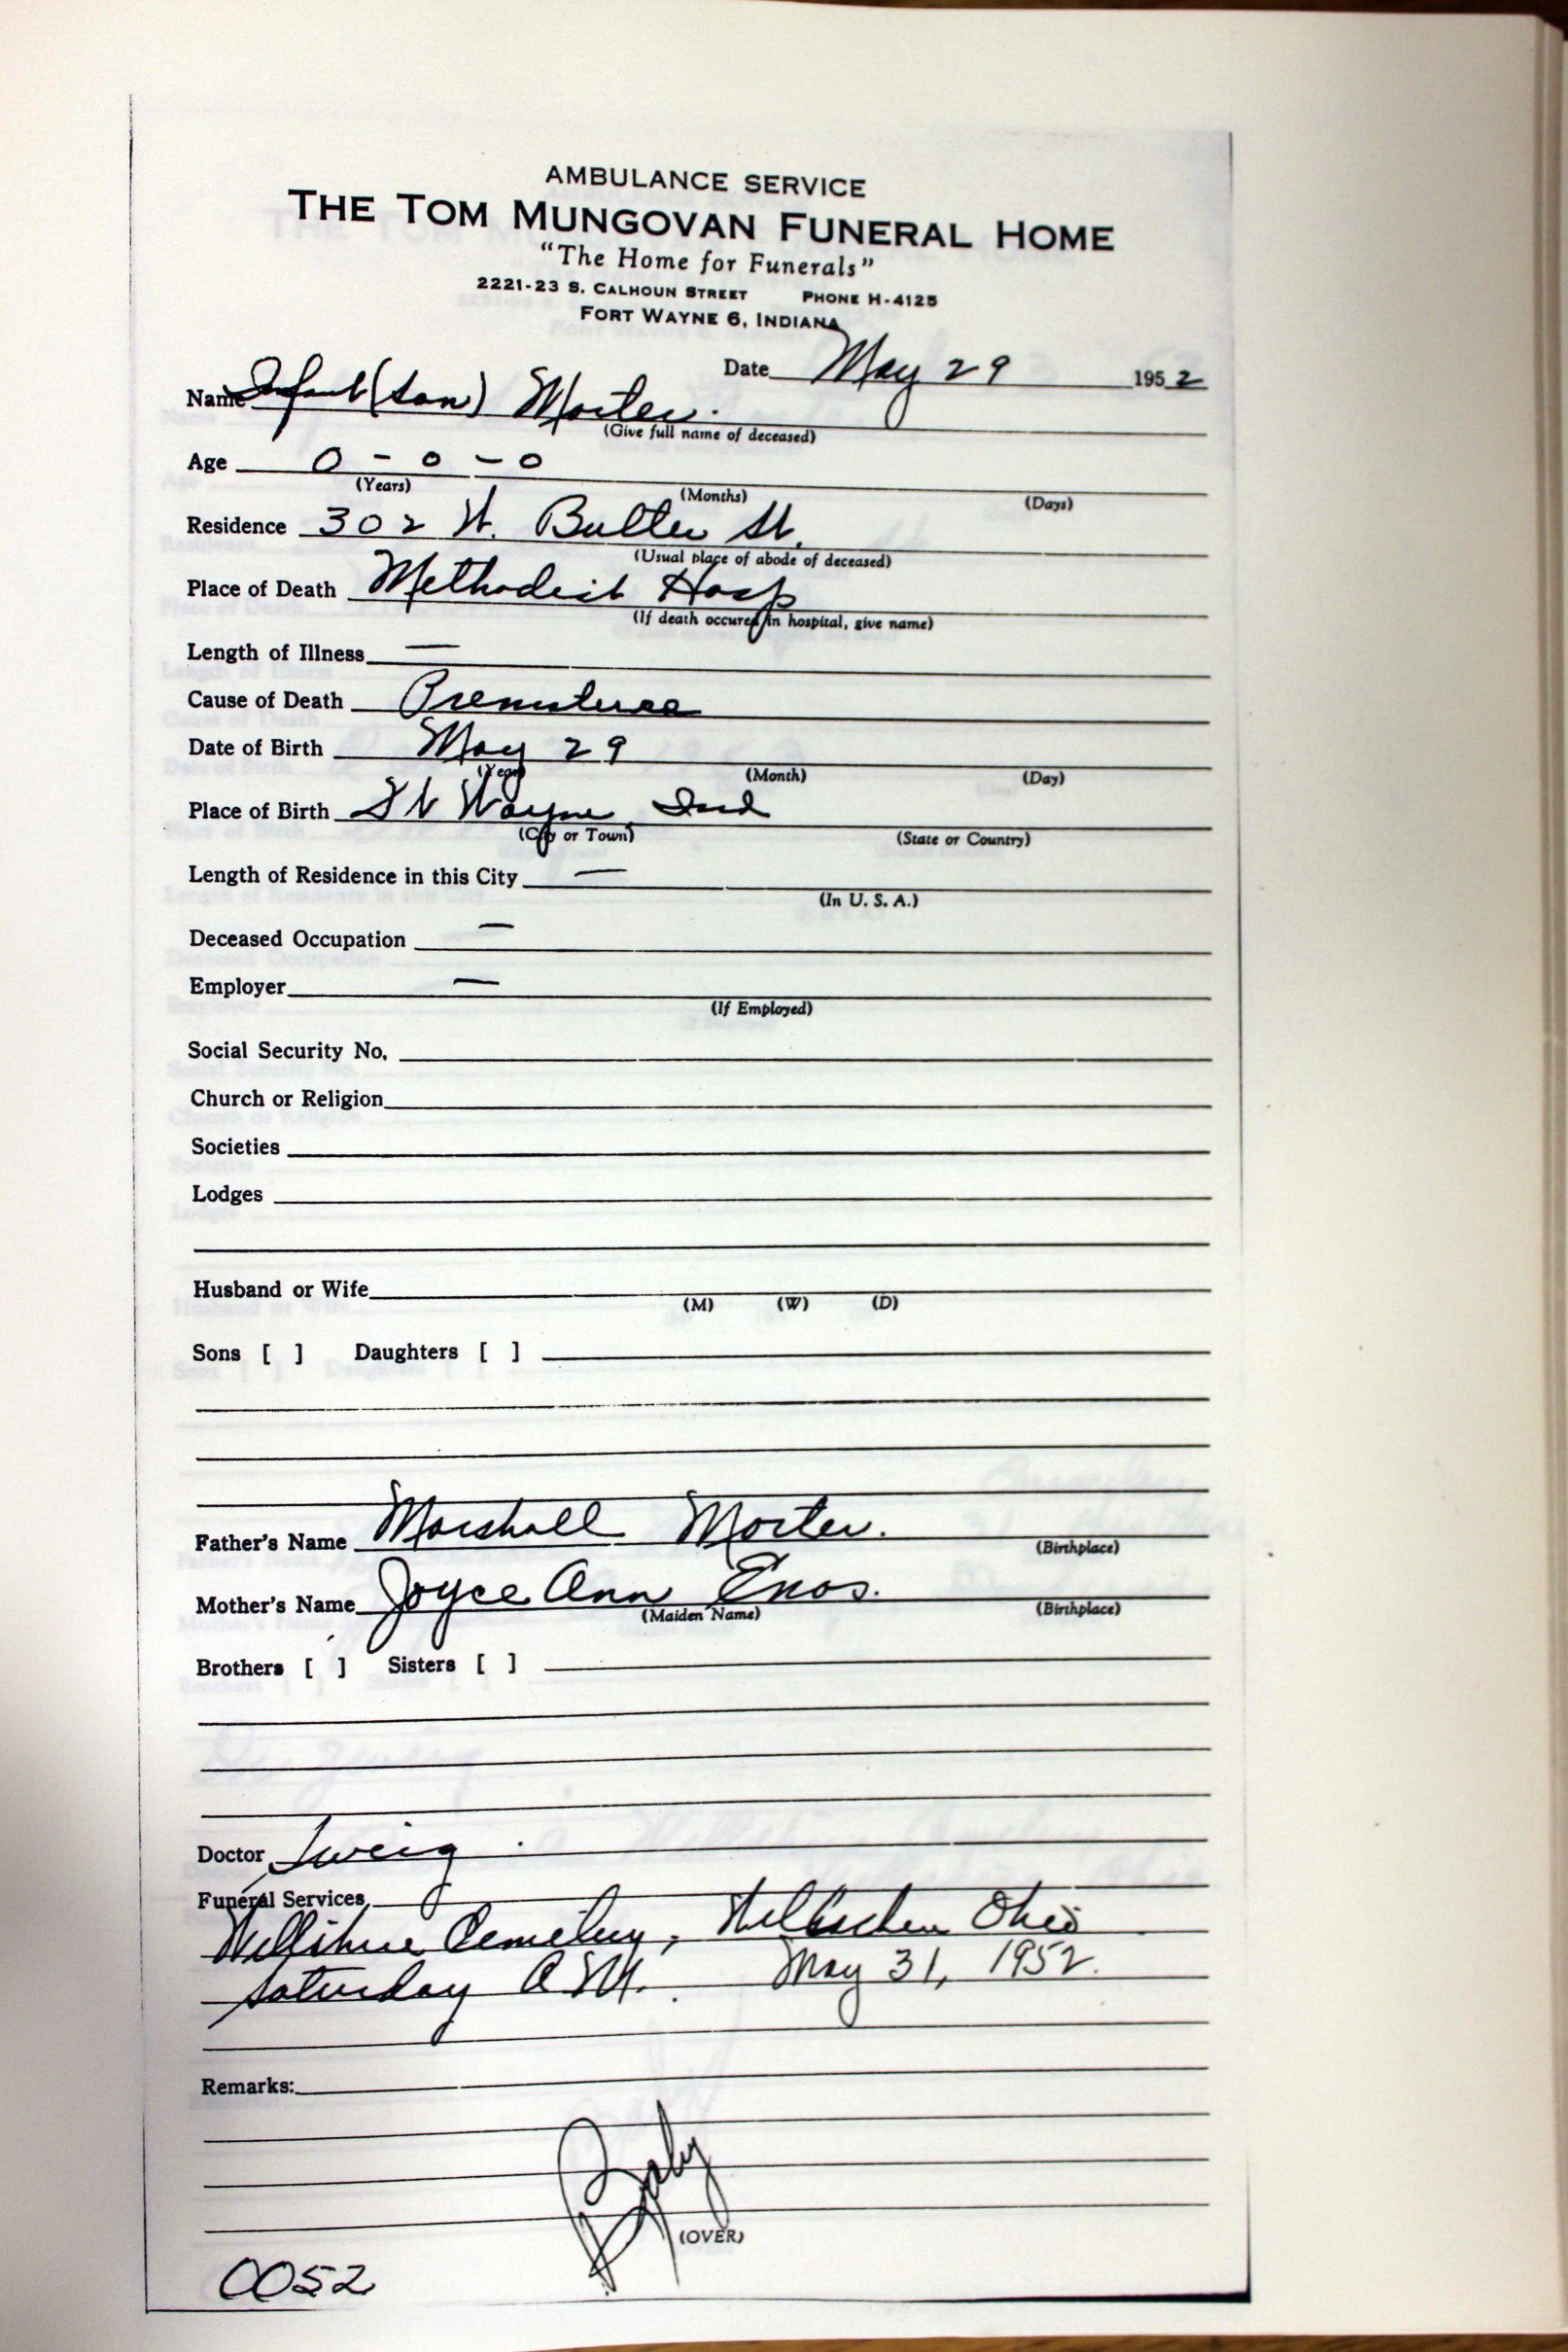 AMBULANCE SERVICE
THE TOM MUNGOVAN FUNERAL HOME
"The Home for Funerals"
2221-23 S. CALHOUN STREET PHONE H-4125
FORT WAYNE 6, INDIANA
Date May 29 1952
Name Infant (son) Morter.
(Give full name of deceased)
Age 0 - 0 - 0
(Years) (Months) (Days)
Residence 302 W. Butler St.
(Usual place of abode of deceased)
Place of Death Methodist Hosp
(If death occured in hospital, give name)
Length of Illness —
Cause of Death
Date of Birth May 29
(Year) (Month) (Day)
Place of Birth Ft Wayne, Ind
(City or Town) (State or Country)
Length of Residence in this City —
(In U. S. A.)
Deceased Occupation —
Employer —
(If Employed)
Social Security No.
Church or Religion
Societies
Lodges
Husband or Wife
(M) (W) (D)
Sons [ ] Daughters [ ]
Father's Name Marshall Morter.
(Birthplace)
Mother's Name Joyce Ann Enos.
(Maiden Name) (Birthplace)
Brothers [ ] Sisters [ ]
Doctor Zweig
Funeral Services
Cemetery, Ohio
Saturday A.M. May 31, 1952.
Remarks:
Baby
(OVER)
0052